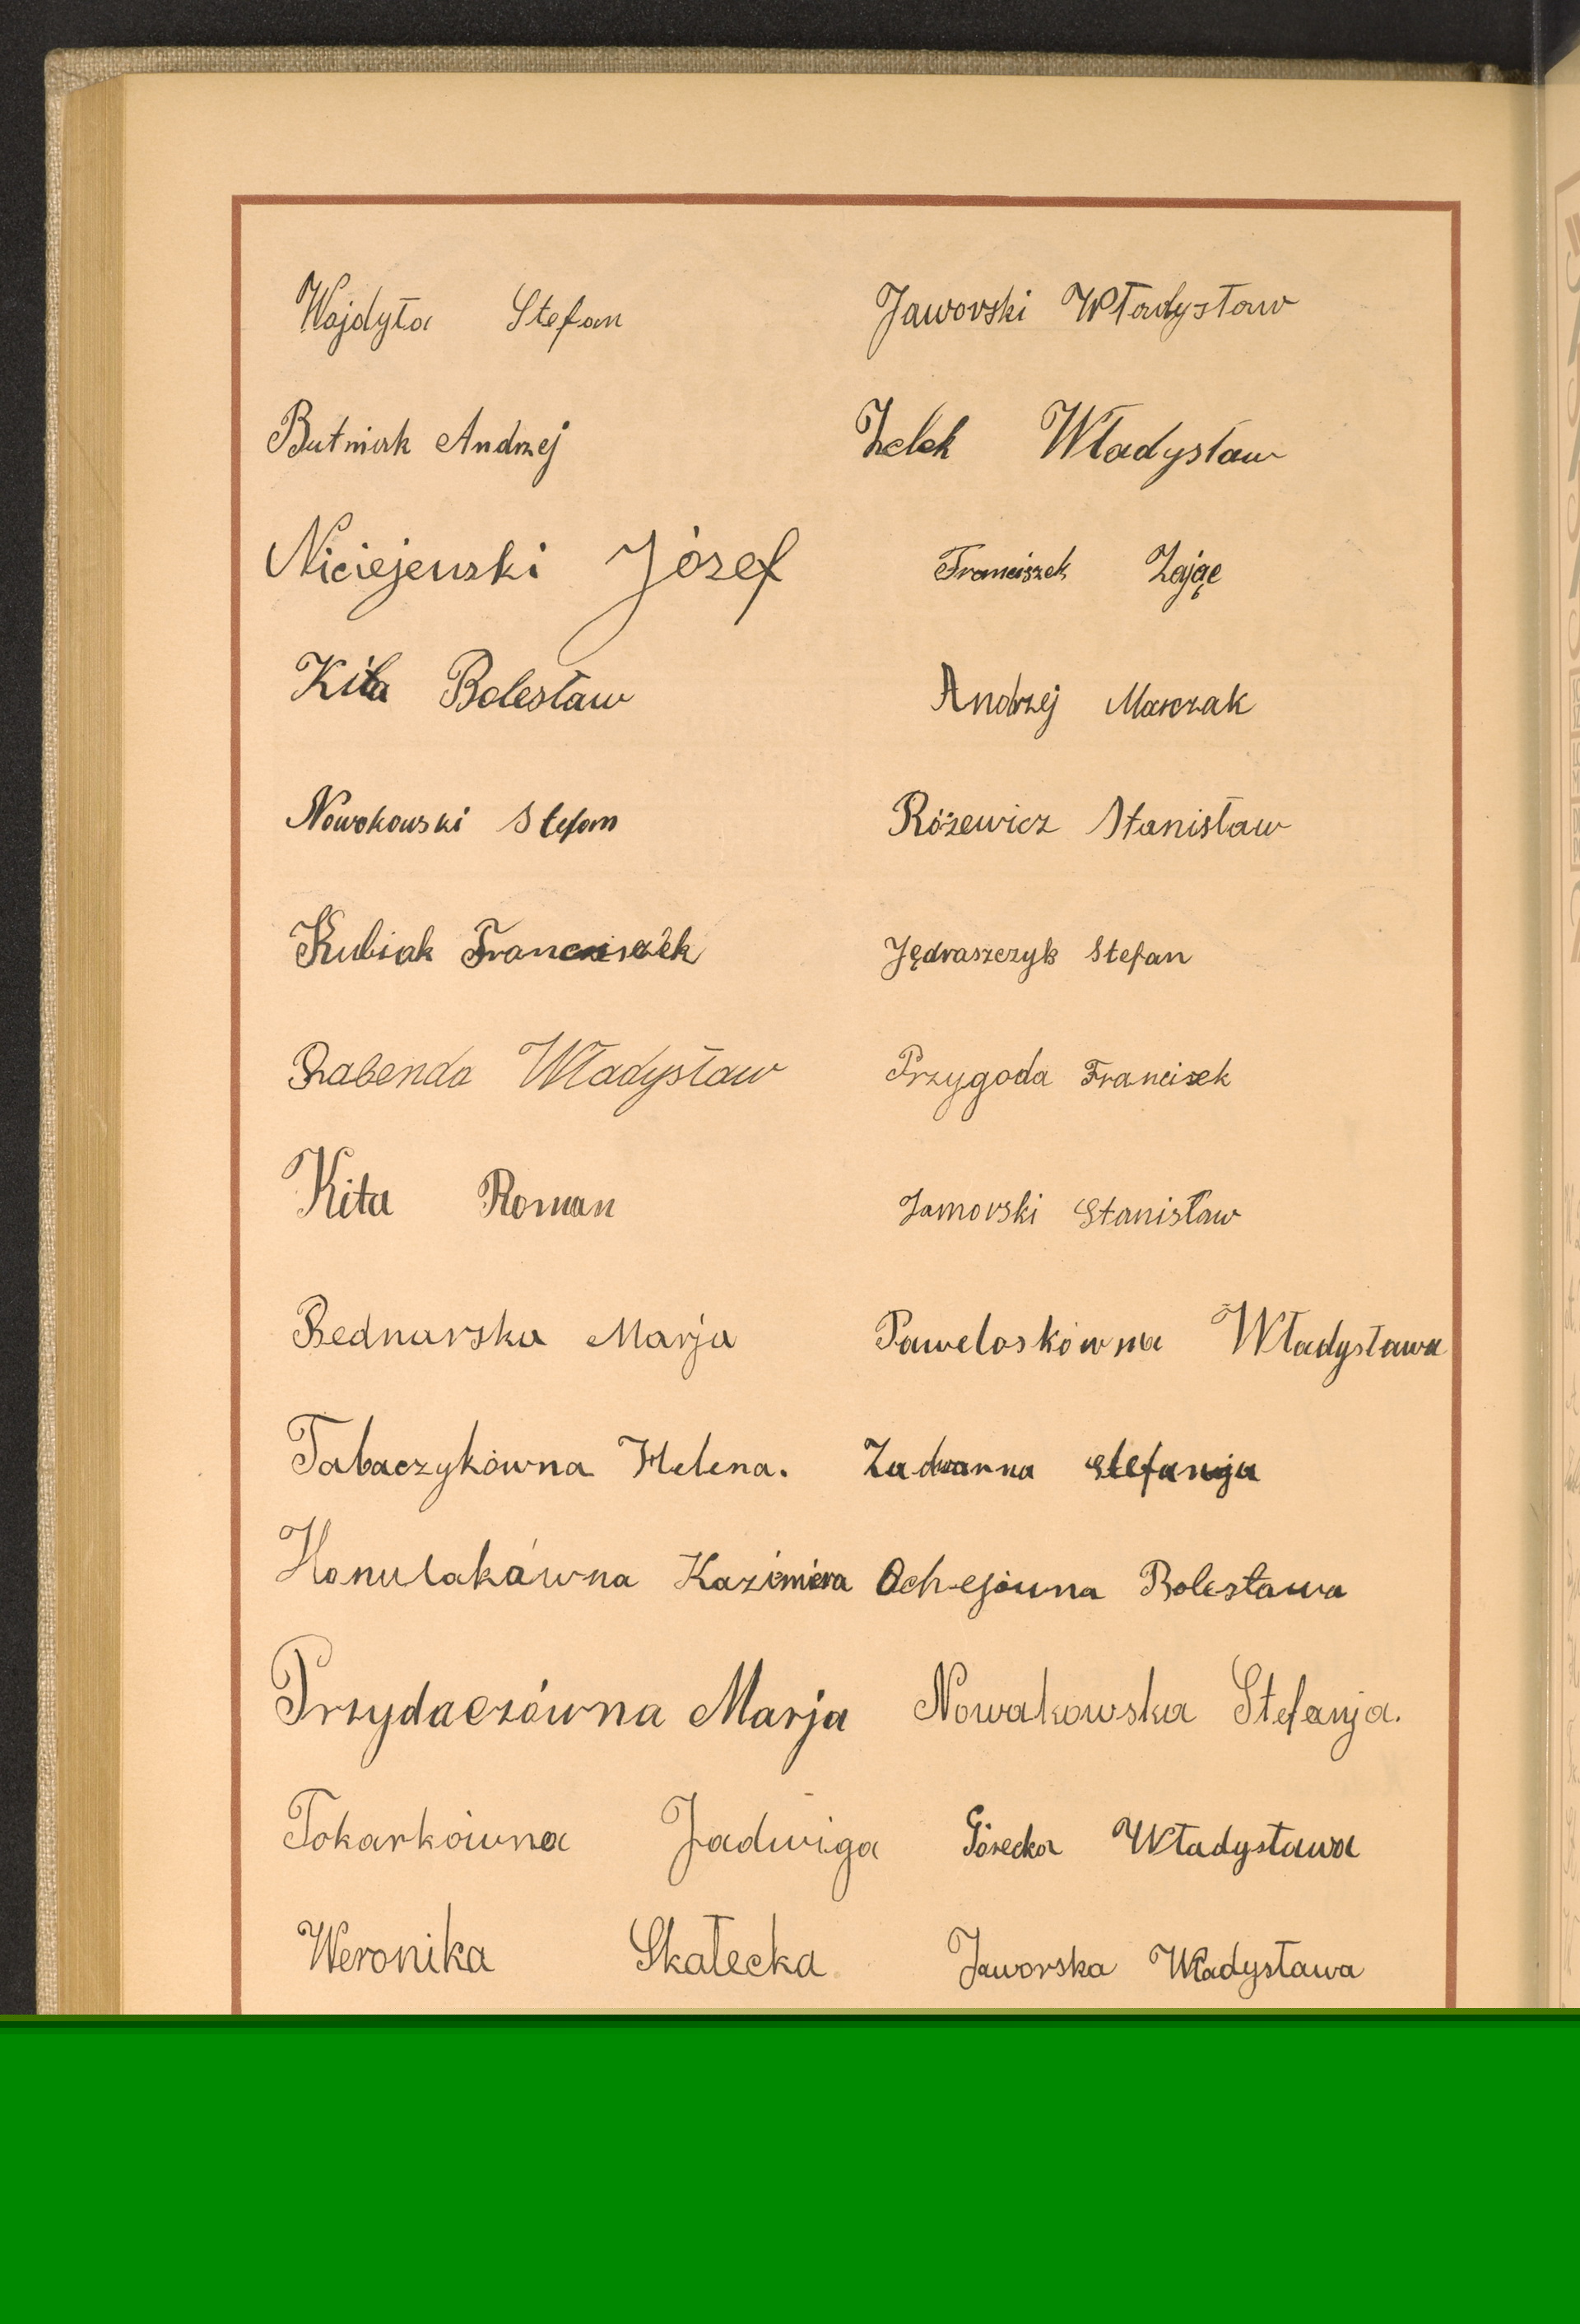 Wojdyła Stefan Jaworski Władysław
Butniak Andrzej Żelek Władysław
Niciejewski Józef Franciszek Zając
Kita Bolesław Andrzej Marczak
Nowokowski Stefan Różewicz Stanisław
Kubiak Franciszek Jędraszczyk Stefan
Rabenda Władysław Przygoda Francisek
Kita Roman Jamorski Stanisław
Bednarska Marja Paweloskówna Władysława
Tabaczykówna Helena. Stefanja
Honulakówna Kazimiera Ochejówna Bolesława
Przydaczówna Marja Nowakowska Stefanja.
Tokarkówna Jadwiga Górecka Władysława
Weronika Skałecka Jaworska Władysława